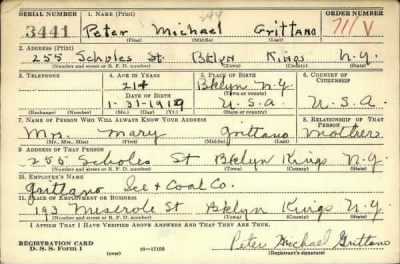 SERIAL NUMBER 1. NAME (Print) ORDER NUMBER
3441 Peter Michael Grittano 711 V
(First) (Middle) (Last)
2. ADDRESS (Print)
255 Scholes St. Bklyn Kings N.Y.
(Number and street or R. F. D. number) (Town) (County) (State)
3. TELEPHONE 4. AGE IN YEARS 5. PLACE OF BIRTH 6. COUNTRY OF CITIZENSHIP
21 Bklyn N.Y.
DATE OF BIRTH (Town or county)
1-31-1919 U.S.A U.S.A.
(Exchange) (Number) (Mo.) (Day) (Yr.) (State or country)
7. NAME OF PERSON WHO WILL ALWAYS KNOW YOUR ADDRESS 8. RELATIONSHIP OF THAT PERSON
Mrs. Mary Grittano Mother
(Mr., Mrs., Miss) (First) (Middle) (Last)
9. ADDRESS OF THAT PERSON
255 Scholes St Bklyn Kings N.Y
(Number and street or R. F. D. number) (Town) (County) (State)
10. EMPLOYER'S NAME
Grittano Ice & Coal Co.
11. PLACE OF EMPLOYMENT OR BUSINESS
193 Meserole St Bklyn Kings N.Y.
(Number and street or R. F. D. number) (Town) (County) (State)
I AFFIRM THAT I HAVE VERIFIED ABOVE ANSWERS AND THAT THEY ARE TRUE.
REGISTRATION CARD
D. S. S. FORM 1 (over) 16-17105 Peter Michael Grittano
(Registrant's signature)